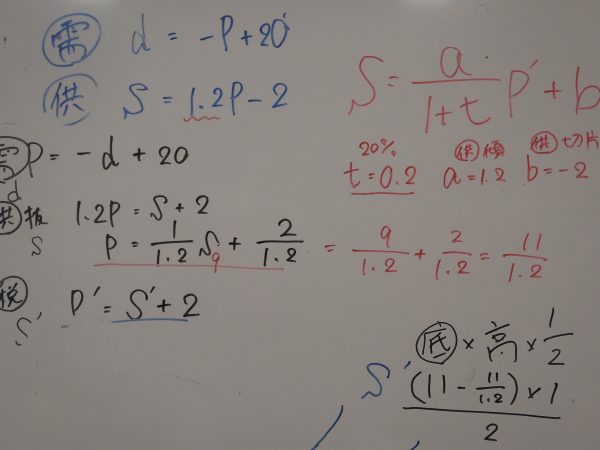 需 d = -P+20
供 S = 1.2P-2
需 P = -d+20
d
供 抜 1.2P = S+2
S P = 1/1.2 S + 2/1.2 = 9/1.2 + 2/1.2 = 11/1.2
9
税 P' = S'+2
S'
S = a/(1+t) P' + b
20% 供 傾 供 切片
t=0.2 a=1.2 b=-2
底 × 高 × 1/2
S' (11 - 11/1.2) × 1
2